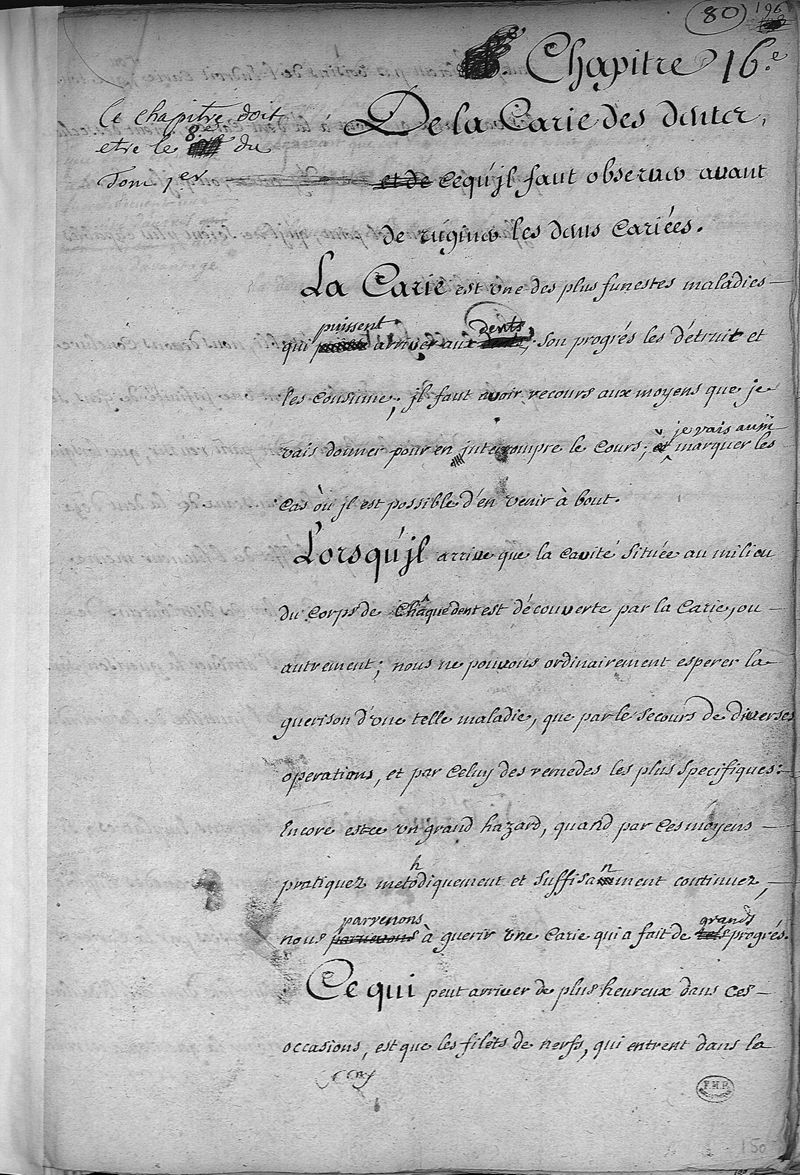 80
196
Chapitre 16.e
Ce chapitre doit
etre le 8.e du
Tome 1.er
De la Carie des dentes,
et de cequ'jl faut observer avant
de ruginer les dens Cariées.
La Carie est vne des plus funestes maladies
qui puissent arriver aux dents; son progrés les détruit et
les consume; jl faut avoir recours aux moyens que je
vais donner pour en jnterrompre le Cours; et je vais aussi marquer les
cas où jl est possible d'en venir à bout.
Lorsqu'jl arrive que la cavité située au milieu
du Corps de Châque dent est découverte par la Carie, ou
autrement; nous ne pouvons ordinairement esperer la
guerison d'vne telle maladie, que par le secours de diverses
operations, et par Celuy des remedes les plus specifiques:
Encore estce vn grand hazard, quand par ces moyens
pratiquez methodiquement et suffisanment continuez,
nous parvenons parvenons à guerir vne Carie qui a fait de tels grands progrés.
Ce qui peut arriver de plus heureux dans ces
occasions, est que les filets de nerfs, qui entrent dans la
F.M.P.
150